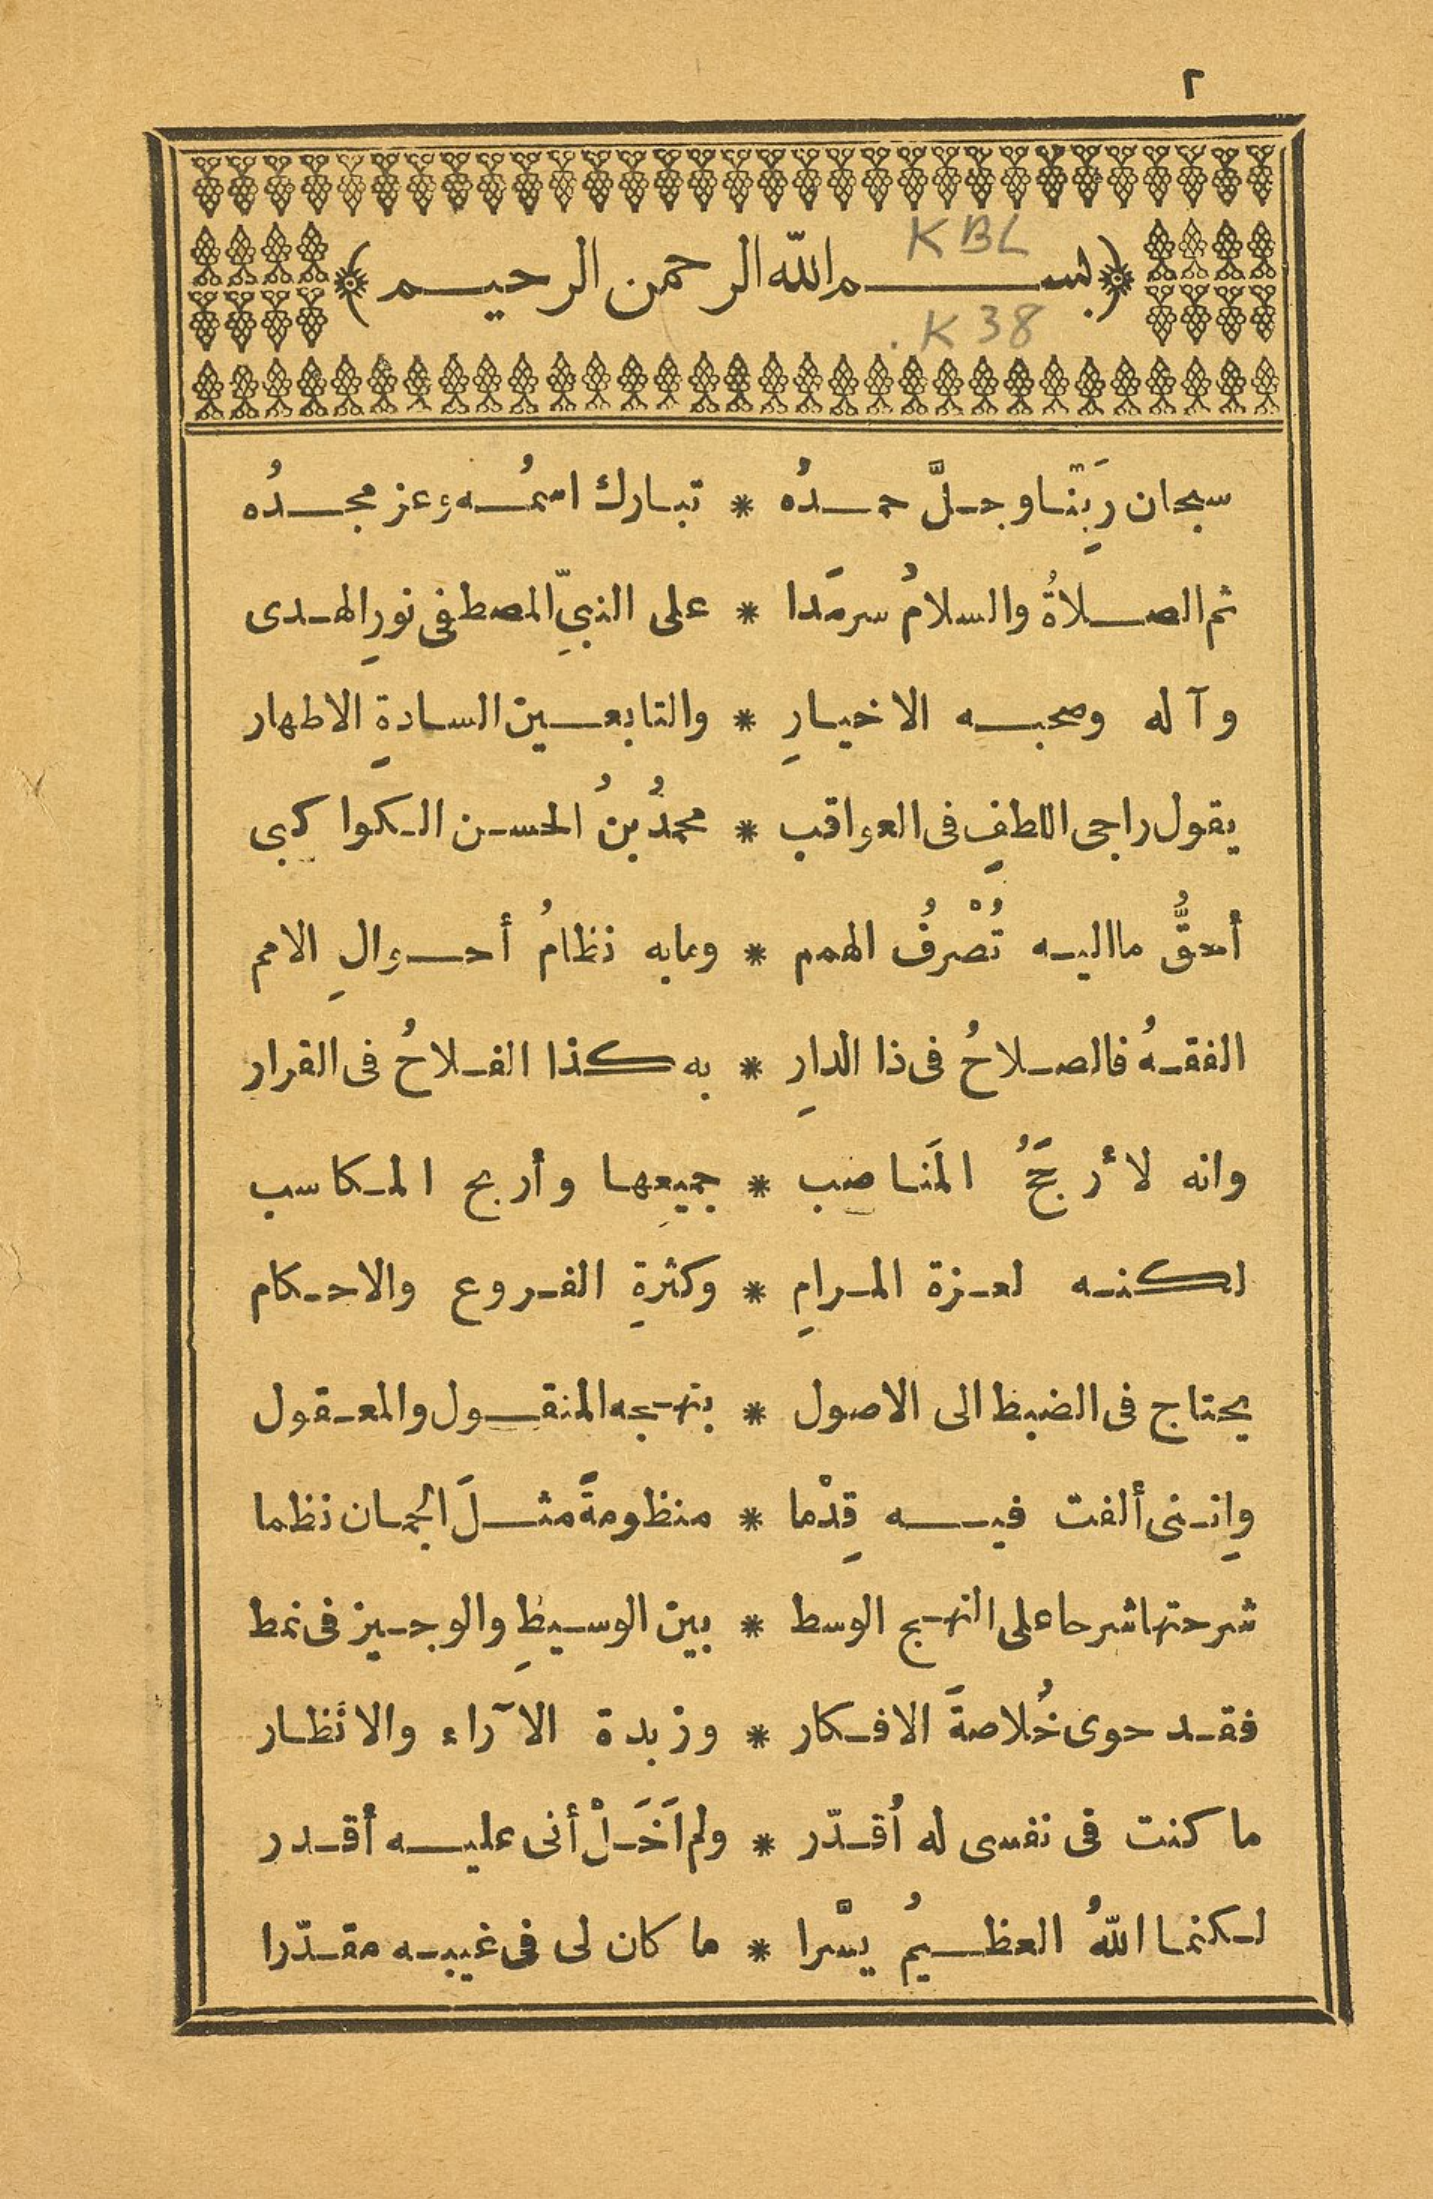 ٢
﴿بسم الله الرحمن الرحيم﴾
KBL
.K38
سبحان رَبِّنا وجلَّ حمدُه * تبارك اسمُه وعز مجدُه
ثم الصلاةُ والسلامُ سرمَدا * على النبيِّ المصطفى نورِ الهدى
وآله وصحبه الاخيارِ * والتابعين السادةِ الاطهار
يقول راجى اللطفِ فى العواقب * محمدُ بنُ الحسن الكواكبى
أحقُّ ما اليه تُصْرفُ الهمم * وما به نظامُ أحوالِ الامم
الفقهُ فالصلاحُ فى ذا الدارِ * به كذا الفلاحُ فى القرار
وانه لأرجَحُ المَناصب * جميعِها وأربح المكاسب
لكنه لعزة المرامِ * وكثرةِ الفروع والاحكام
يحتاج فى الضبط الى الاصول * بنهجه المنقول والمعقول
وإننى ألفت فيه قِدْما * منظومةً مثلَ الجمان نظما
شرحتها شرحا على النهج الوسط * بين الوسيطِ والوجيز فى نمط
فقد حوى خُلاصةَ الافكار * وزبدة الآراء والانظار
ما كنت فى نفسى له أُقدّر * ولم اَخَلْ أنى عليه أقدر
لكنما اللهُ العظيمُ يسَّرا * ما كان لى فى غيبه مقدّرا